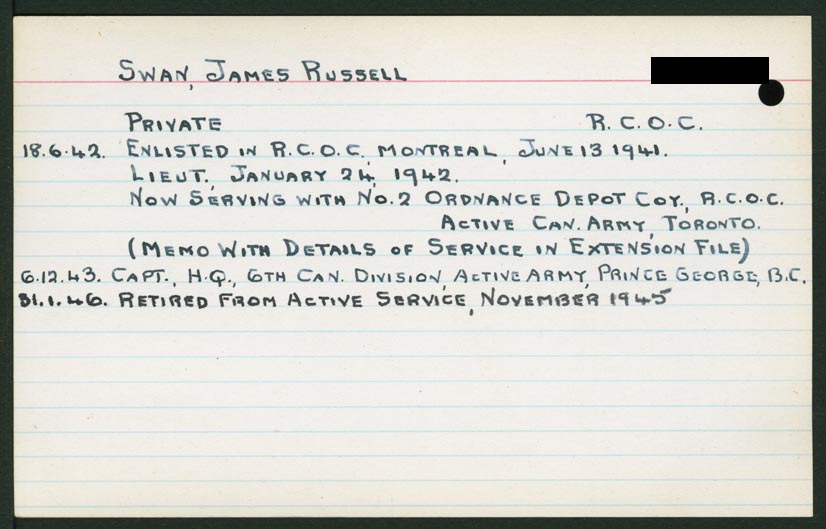 SWAN, JAMES RUSSELL
PRIVATE R.C.O.C.
18.6.42. ENLISTED IN R.C.O.C., MONTREAL, JUNE 13 1941.
LIEUT., JANUARY 24, 1942.
NOW SERVING WITH NO. 2 ORDNANCE DEPOT COY., R.C.O.C.
ACTIVE CAN. ARMY, TORONTO.
(MEMO WITH DETAILS OF SERVICE IN EXTENSION FILE)
6.12.43. CAPT., H.Q., 6TH CAN. DIVISION, ACTIVE ARMY, PRINCE GEORGE, B.C.
31.1.46. RETIRED FROM ACTIVE SERVICE, NOVEMBER 1945